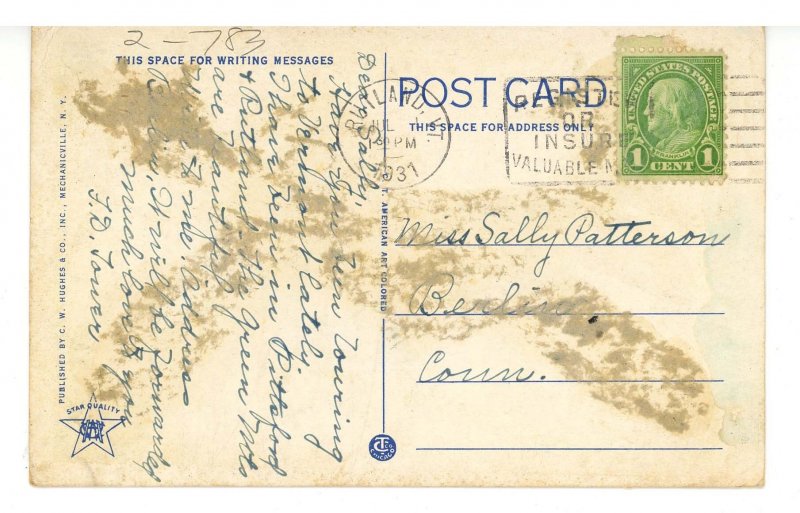 2-783
THIS SPACE FOR WRITING MESSAGES
POST CARD
THIS SPACE FOR ADDRESS ONLY
Dear Sally;
Have you been touring
to Vermont lately.
I have been in Pittsford
& Rutland. the Green Mts
are beautiful
Write to me. address
Berlin, It will be forwarded
much love to you
T. D. Tower
RUTLAND, VT.
JUL
PM
1931
REGISTER
OR
INSURE
VALUABLE M
UNITED STATES POSTAGE
FRANKLIN
1 CENT 1
Miss Sally Patterson
Berlin
Conn.
PUBLISHED BY C. W. HUGHES & CO., INC., MECHANICVILLE, N. Y.
C. T. AMERICAN ART COLORED
STAR QUALITY
CHICAGO